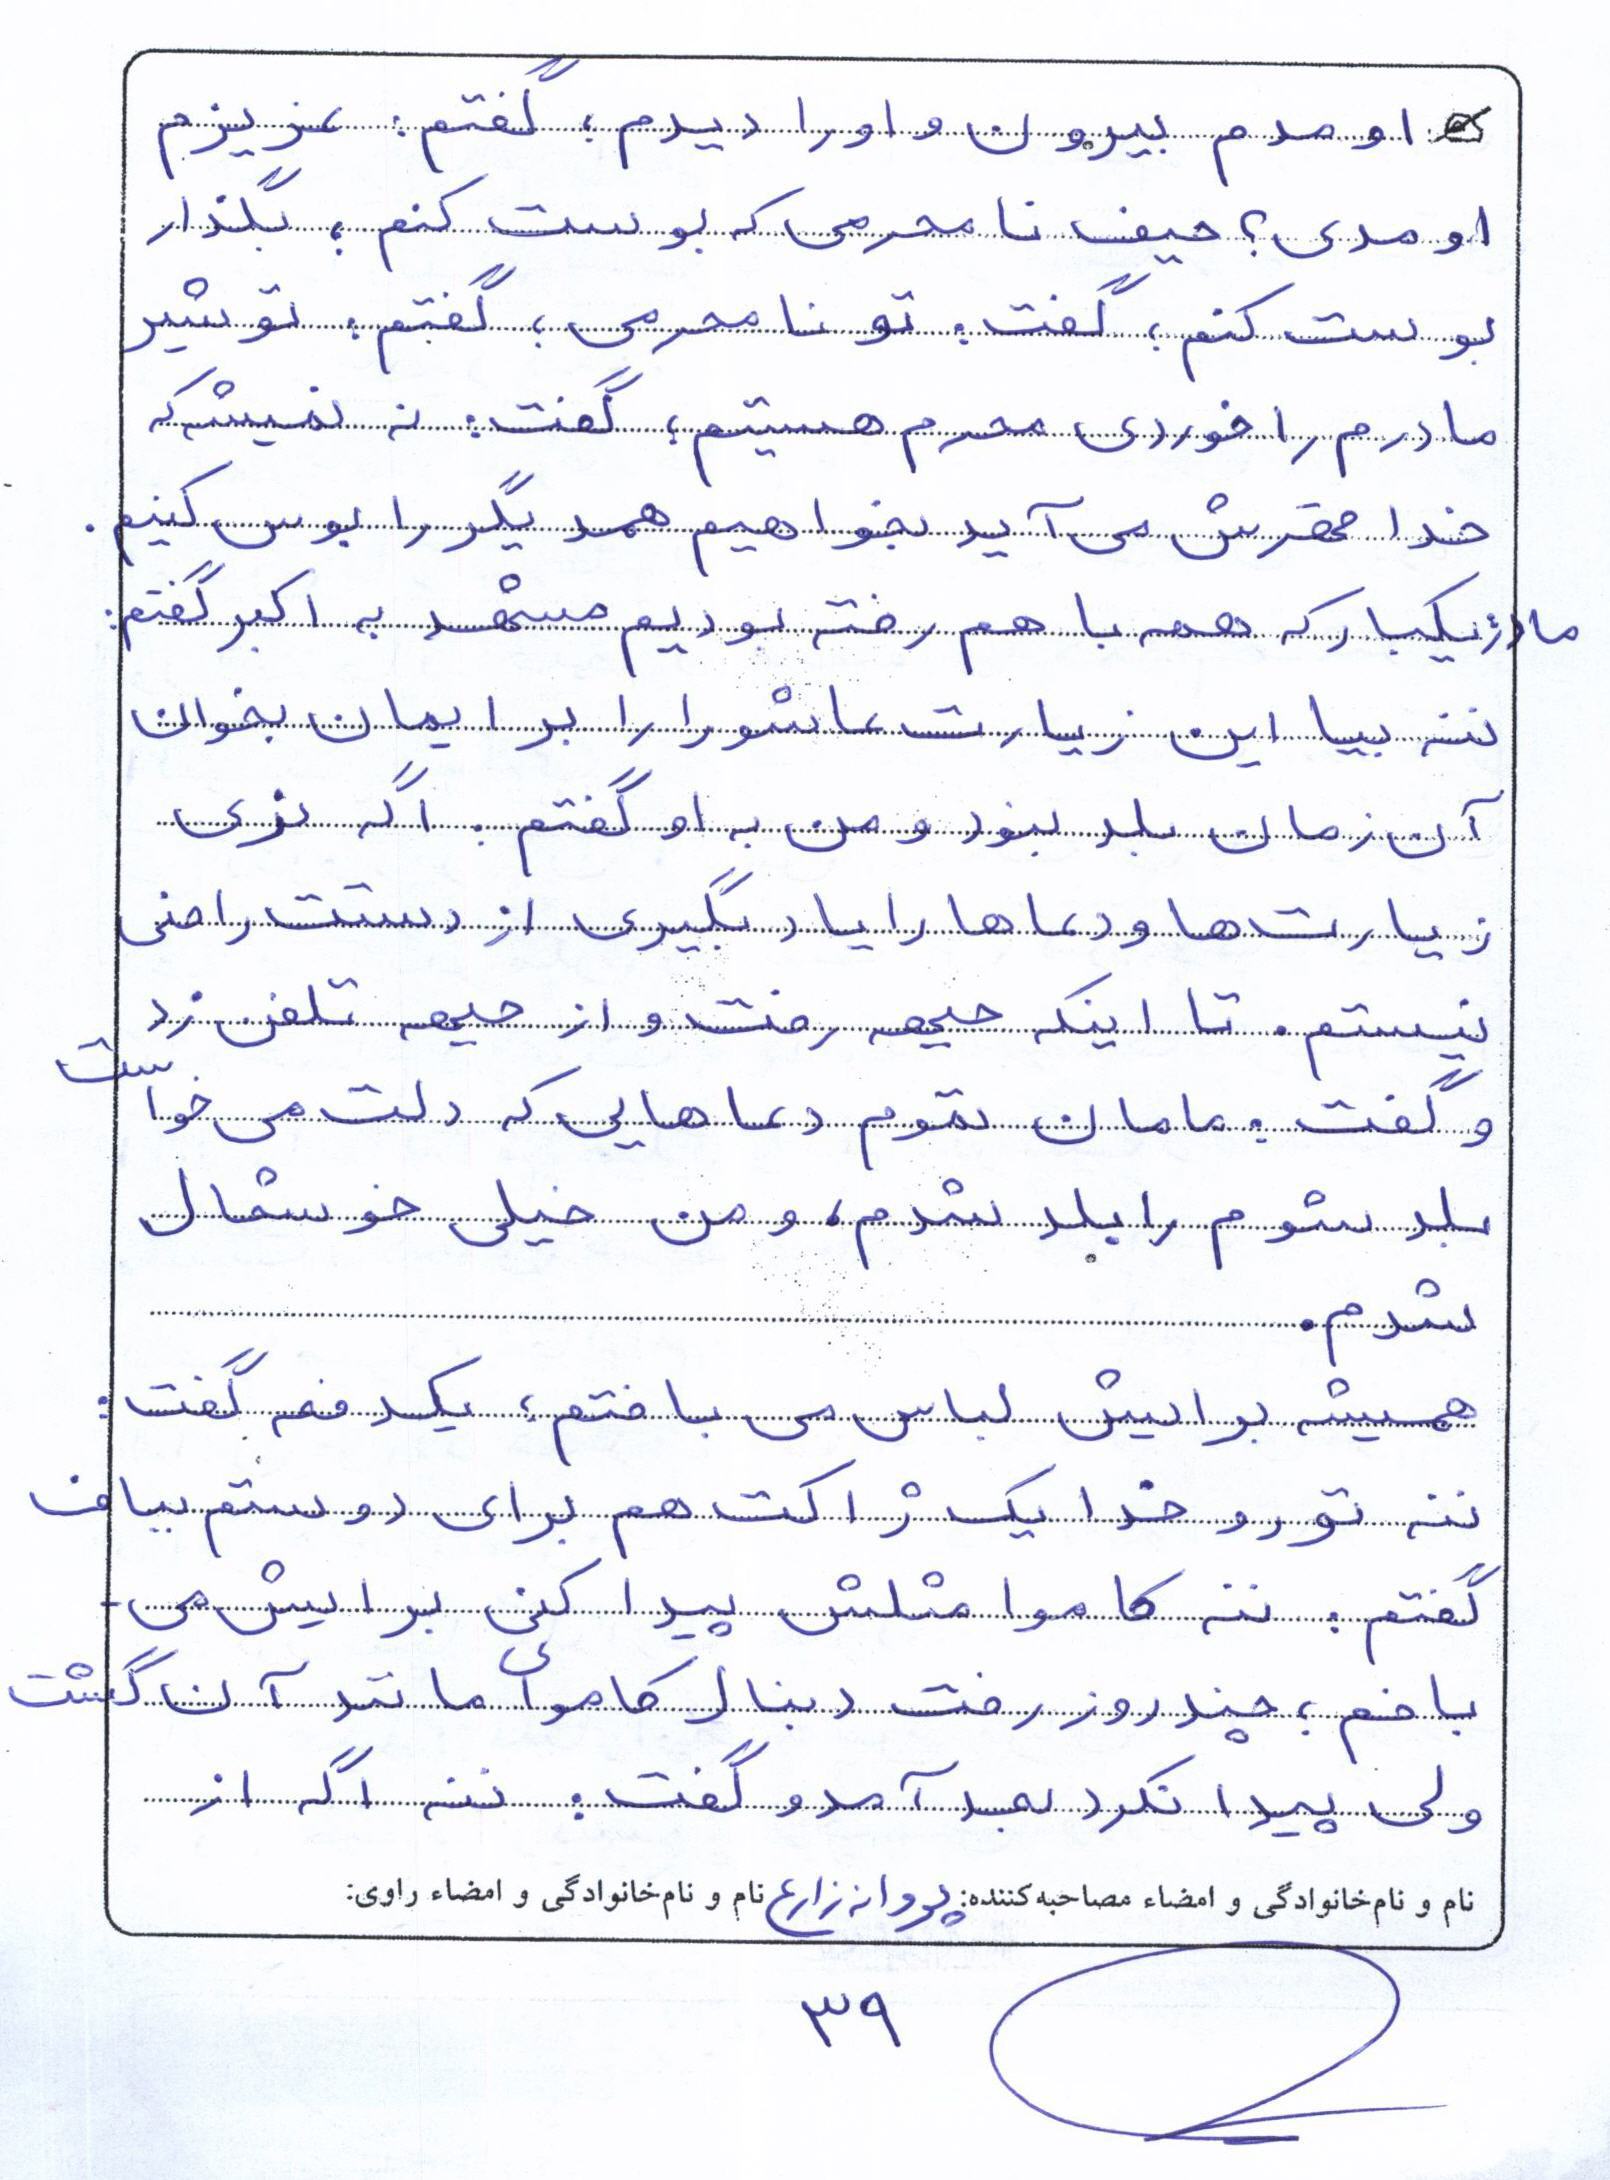 اومدم بیرون و او را دیدم؛ گفتم: عزیزم
اومدی؟ حیف نا محرمی که بوست کنم؛ بگذار
بوست کنم؛ گفت: تو نا محرمی؛ گفتم: تو شیر
مادرم را خوردی محرم هستیم؛ گفت: نه نمیشه که
خدا قهرش می آید بخواهیم همدیگر را بوس کنیم.
مادر یکبار که همه با هم رفته بودیم مشهد به اکبر گفتم:
ننه بیا این زیارت عاشورا را برایمان بخوان
آن زمان بلد نبود و من به او گفتم: اگه نری
زیارت ها و دعاها را یاد بگیری از دستت راضی
نیستم. تا اینکه جبهه رفت و از جبهه تلفن زد
و گفت: مامان تموم دعاهایی که دلت می خواست
بلد شوم را بلد شدم، و من خیلی خوشحال
شدم.
همیشه برایش لباس می بافتم؛ یکدفعه گفت:
ننه تو رو خدا یک ژاکت هم برای دوستم بباف
گفتم: ننه کاموا مثلش پیدا کنی برایش می-
بافم؛ چند روز رفت دنبال کاموای مانند آن گشت
ولی پیدا نکرد بعد آمد و گفت: ننه اگه از
نام و نام‌خانوادگی و امضاء مصاحبه‌کننده: پروانه زارع نام و نام‌خانوادگی و امضاء راوی:
۳۹